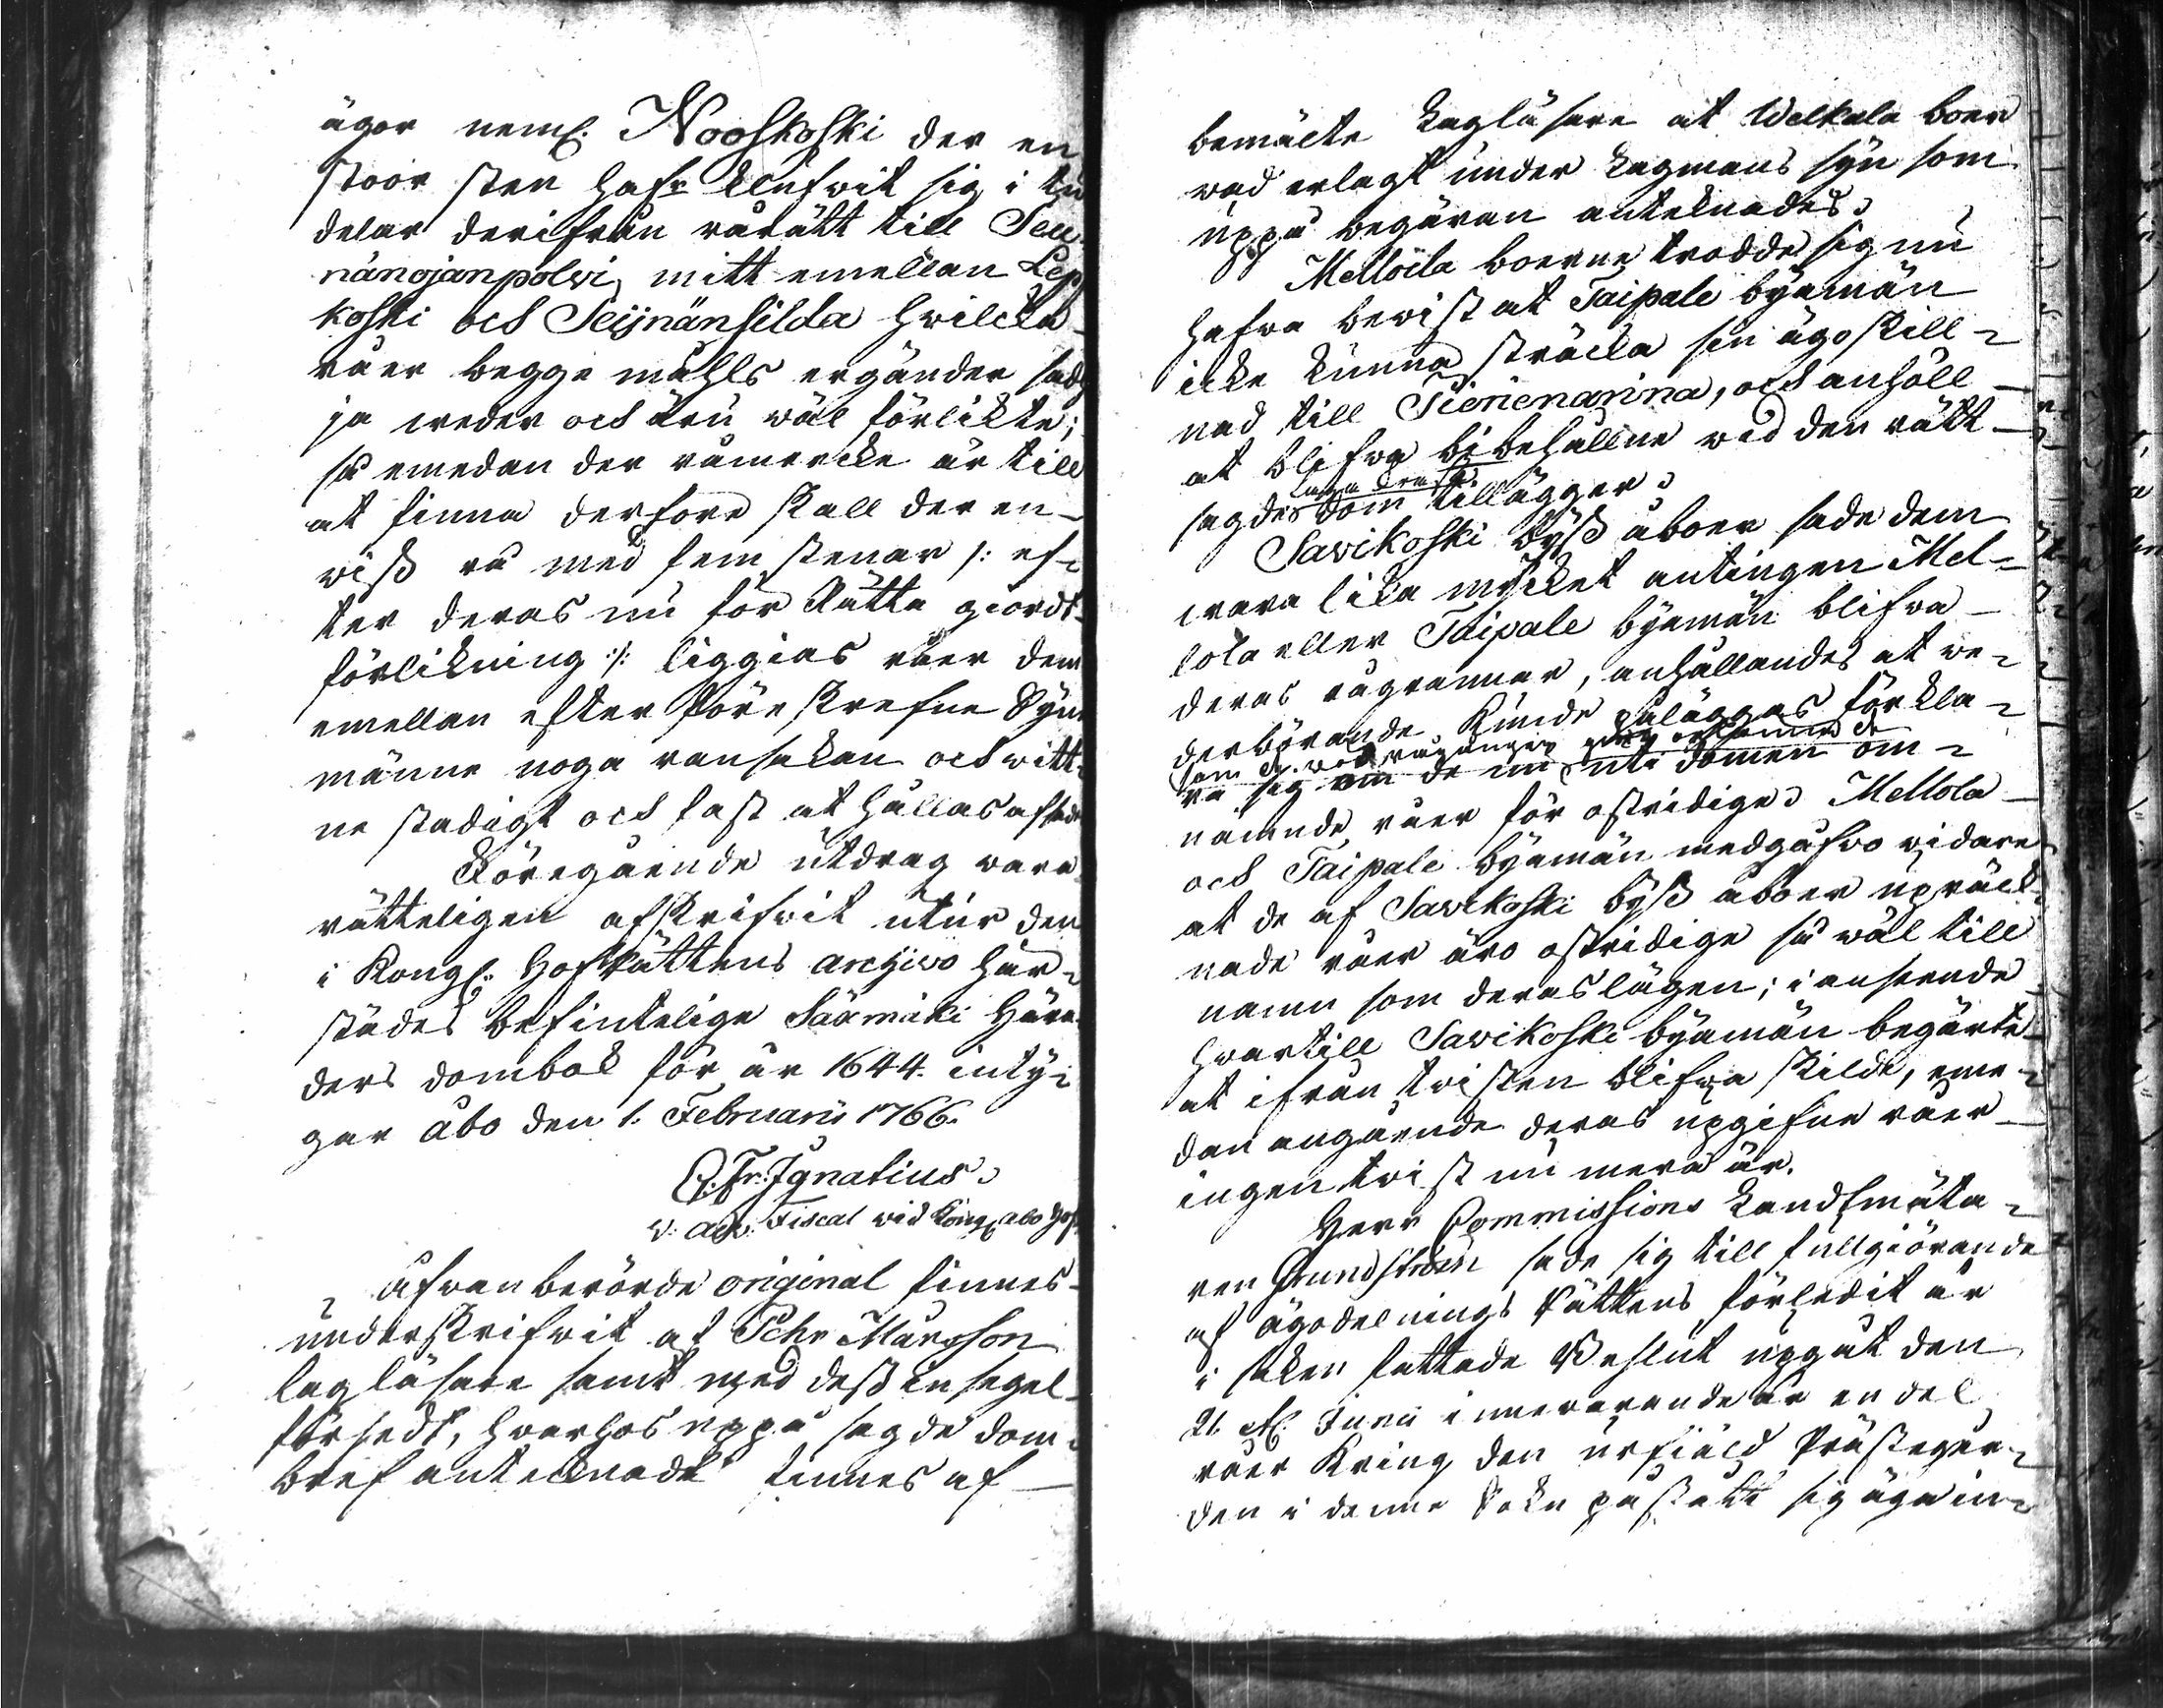 ägor neml. Nooskoski der en
stoor sten hafr klufwit sig i tu
delar derifrån rårätt till Sei
nänojanpolwi, mitt emellan Lep
koski och Seijnänsilda hwilcka
råer begge måhls ergånder sade
ja weder och äru wäl förlikte;
så emedan der råmercke är till
at finna derföre skall der en
wiß rå med fem stenar /: ef-
ter deras nu för Rätta giordt
förlikning :/: liggias råer dem
emellan efter föreskrefne Syne
männe noga ransakan och witt-
ne stadigt och fast at hållas
Föregående utdrag wara
rätteligen afskrifwit utur den
i Kongl. Hofrättens archivo här-
städes befintelige Säxmäki Hära-
ders dombok för år 1644. inty-
gar Åbo den 1. Februarii 1766.
Fr. Ignatius.
v. adv. Fiscal wid Kongl. Åbo Hof
Åfwanberörde original finnes
underskrifwit af Pehr Månsson
lagläsare samt med deß insegel
försedt, hwarhos uppå sagde dom-
bref antecknadt finnes af
bemälte Lagläsare at Welkala boer
wad erlagt under Lagmans syn som
uppå begäran anteknades.
Melloila boerne trodde sig nu
hafwa bewist at Taipale byamän
icke kunna sträcka sin ägoskill-
nad till Tienenarina, och anhöll
at blifwa bibehållne wid den rätt
laga kraft
sagdes dom tillägger.
Sawikoski byß åboer sade dem
wara lika mycket antingen Mel-
lola eller Taipale byamän blifwa
deras rågrannar, anhållandes at we-
derbörande kunde påläggas förkla-
som wid rågången
ra sig om de nu uti domen om-
nämnde råer för ostridige. Mellola
och Taipale byamän medgåfwo widare
at de af Sawikoski byß åboer upräck-
nade råer äro ostridige så wäl till
namn som deras lägen; i anseende
hwartill Sawikoski byamän begärte
at ifrån twisten blifwa skilde, eme-
dan angående deras upgifne råer
ingen twist nu mera är.
Herr Commissions Landtmäta-
ren Grundström sade sig till fullgiörande
af ägodelnings Rättens förledit år
i saken fattade Beslut upgåt den
21. Junii innewarande år en del
råer kring den urfiäld Prästegår-
den i denne Sokn påstått sig äga in-